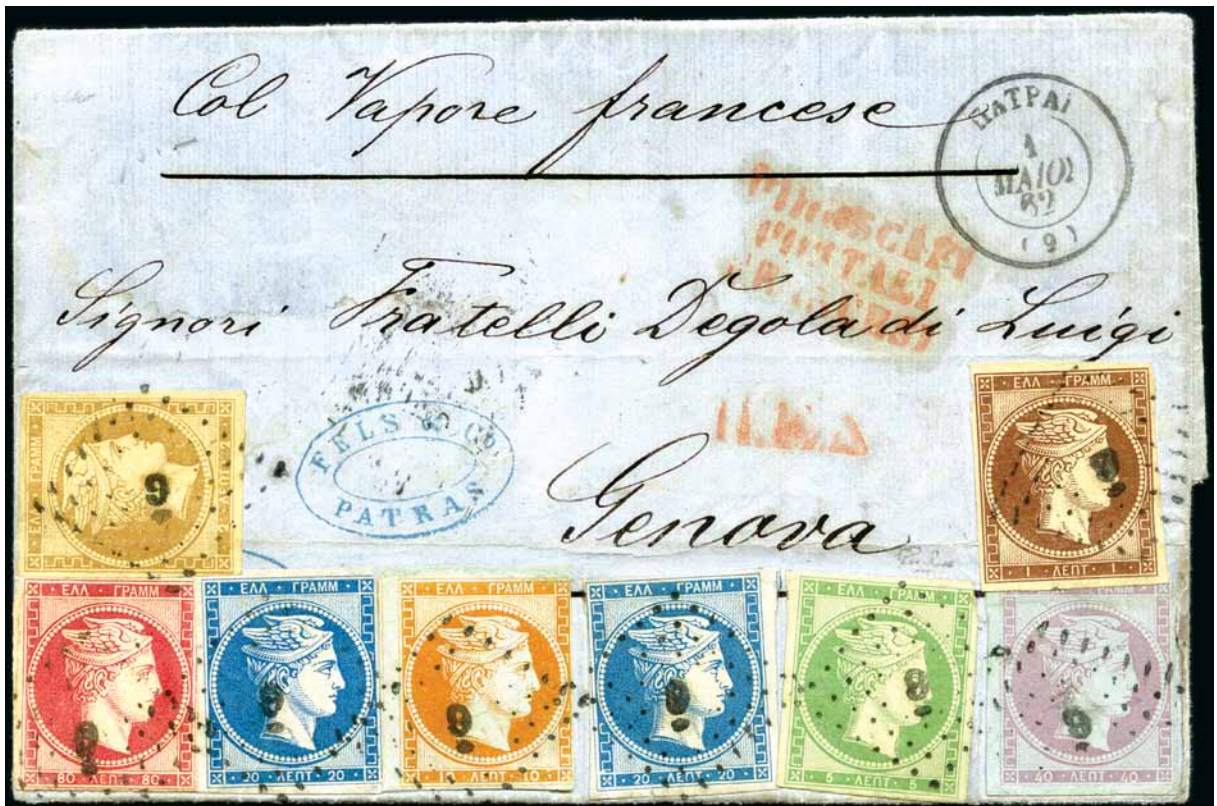 Col Vapore francese
ΠΑΤΡΑΙ
1
ΜΑΙΟΣ
62
(9)
PIROSCAFI
POSTALI
FRANCESI
Signori Fratelli Degola di Luigi
FELS & Co.
PATRAS
Genova
ΕΛΛ ΓΡΑΜΜ
9
ΕΛΛ ΓΡΑΜΜ
1 ΛΕΠΤ 1
9
ΕΛΛ ΓΡΑΜΜ
80 ΛΕΠΤ 80
9
ΕΛΛ ΓΡΑΜΜ
20 ΛΕΠΤ 20
9
ΕΛΛ ΓΡΑΜΜ
10 ΛΕΠΤ 10
9
ΕΛΛ ΓΡΑΜΜ
20 ΛΕΠΤ 20
9
ΕΛΛ ΓΡΑΜΜ
5 ΛΕΠΤ 5
9
ΕΛΛ ΓΡΑΜΜ
40 ΛΕΠΤ 40
9